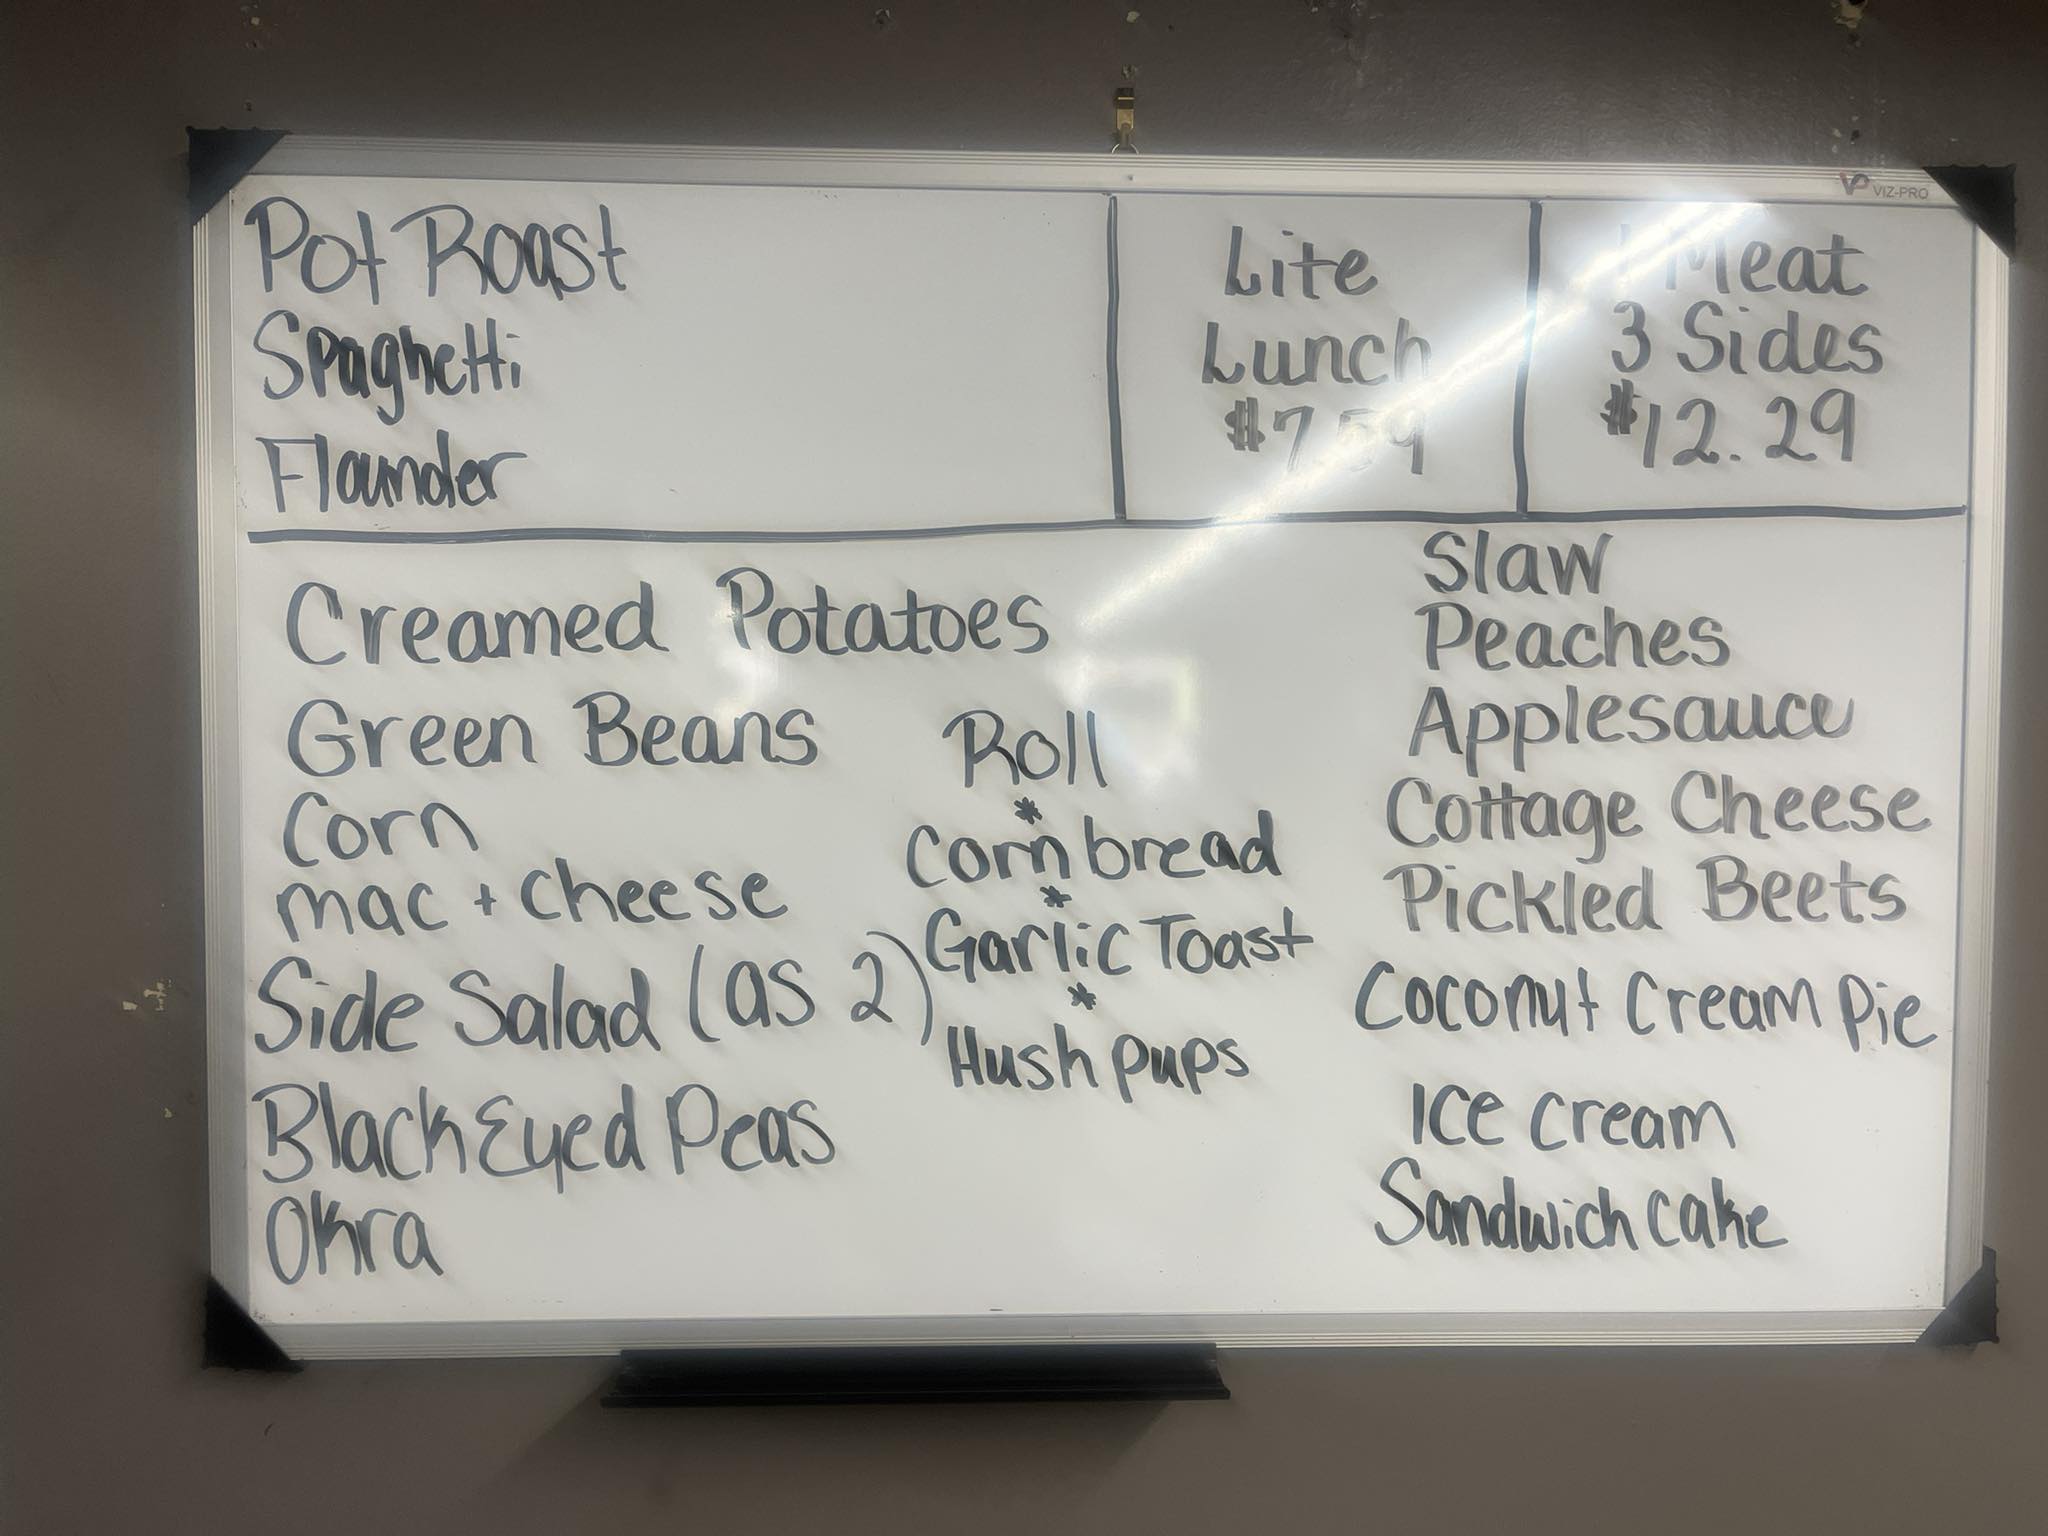 VIZ-PRO
Pot Roast
Spaghetti
Flounder
Lite
Lunch
$7.59
1 Meat
3 Sides
$12.29
Creamed Potatoes
Green Beans
Corn
mac + cheese
Side Salad (as 2)
Black Eyed Peas
Okra
Roll
*
Corn bread
*
Garlic Toast
*
Hush pups
Slaw
Peaches
Applesauce
Cottage Cheese
Pickled Beets
Coconut Cream Pie
Ice cream
Sandwich cake